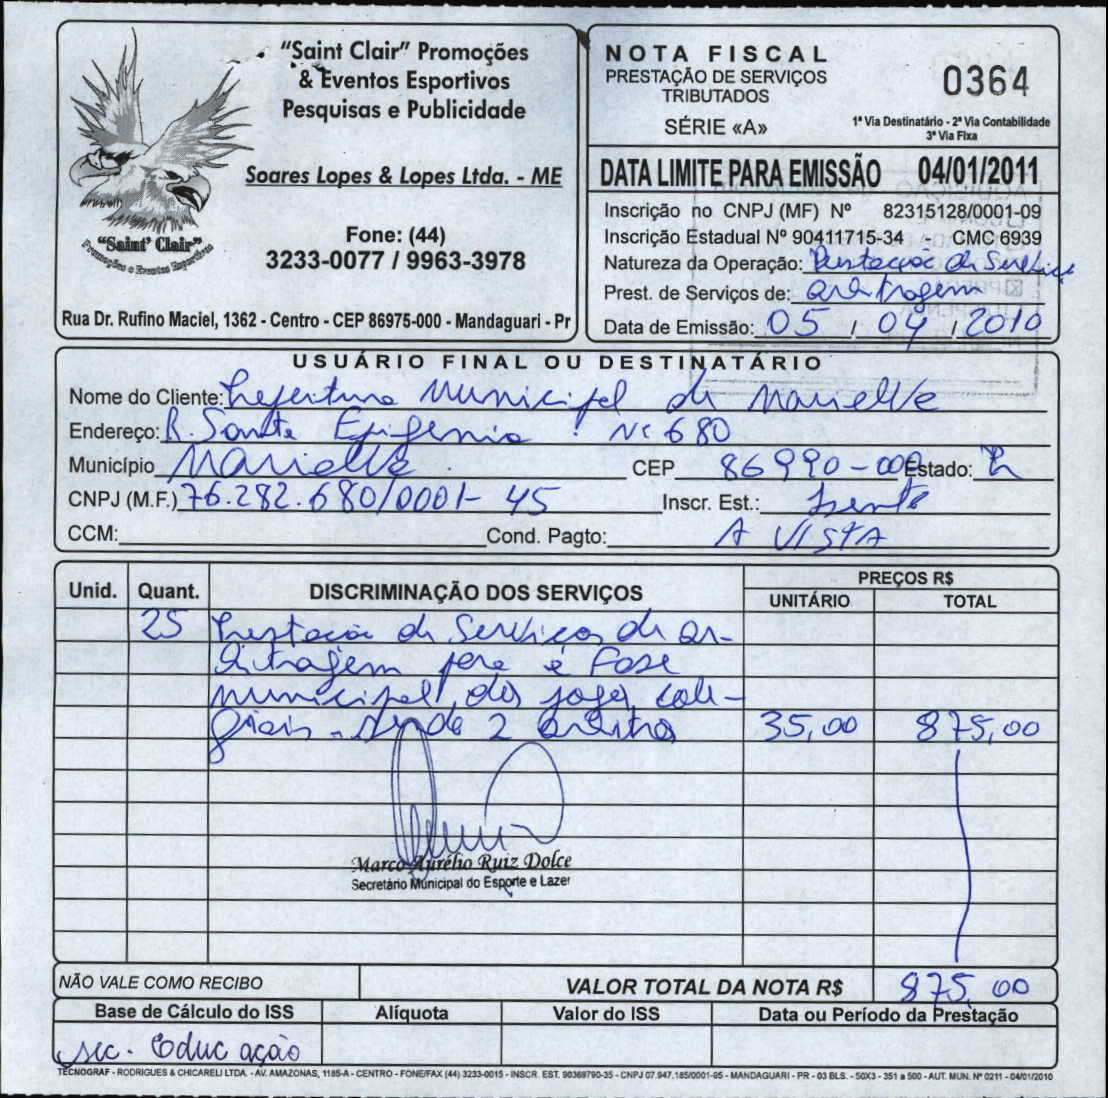 "Saint Clair" Promoções
& Eventos Esportivos
Pesquisas e Publicidade
Soares Lopes & Lopes Ltda. - ME
"Saint' Clair"
Promoções e Eventos Esportivos
Fone: (44)
3233-0077 / 9963-3978
Rua Dr. Rufino Maciel, 1362 - Centro - CEP 86975-000 - Mandaguari - Pr
NOTA FISCAL
PRESTAÇÃO DE SERVIÇOS
TRIBUTADOS
SÉRIE «A»
0364
1ª Via Destinatário - 2ª Via Contabilidade
3ª Via Fixa
DATA LIMITE PARA EMISSÃO 04/01/2011
Inscrição no CNPJ (MF) Nº 82315128/0001-09
Inscrição Estadual Nº 90411715-34 - CMC 6939
Natureza da Operação: Prestação de Serviço
Prest. de Serviços de: arbitragem
Data de Emissão: 05 / 04 / 2010
USUÁRIO FINAL OU DESTINATÁRIO
Nome do Cliente: Prefeitura Municipal de Marialva
Endereço: R. Santa Efigenia Nº 680
Município Marialva CEP 86990-000 Estado: Pr
CNPJ (M.F.) 76.282.680/0001-45 Inscr. Est.: Isento
CCM: Cond. Pagto: A VISTA
Unid. Quant. DISCRIMINAÇÃO DOS SERVIÇOS PREÇOS R$
UNITÁRIO TOTAL
25 Prestação de Serviços de ar-
bitragem para a Fase
municipal dos jogos cole-
giais - sendo 2 arbitros 35,00 875,00
Marco Aurélio Ruiz Dolce
Secretário Municipal do Esporte e Lazer
NÃO VALE COMO RECIBO VALOR TOTAL DA NOTA R$ 875,00
Base de Cálculo do ISS Alíquota Valor do ISS Data ou Período da Prestação
sec. Educação
TECNOGRAF - RODRIGUES & CHICARELI LTDA. - AV. AMAZONAS, 1185-A - CENTRO - FONE/FAX (44) 3233-0015 - INSCR. EST. 90369790-35 - CNPJ 07.947.185/0001-95 - MANDAGUARI - PR - 03 BLS. - 50X3 - 351 a 500 - AUT. MUN. Nº 0211 - 04/01/2010